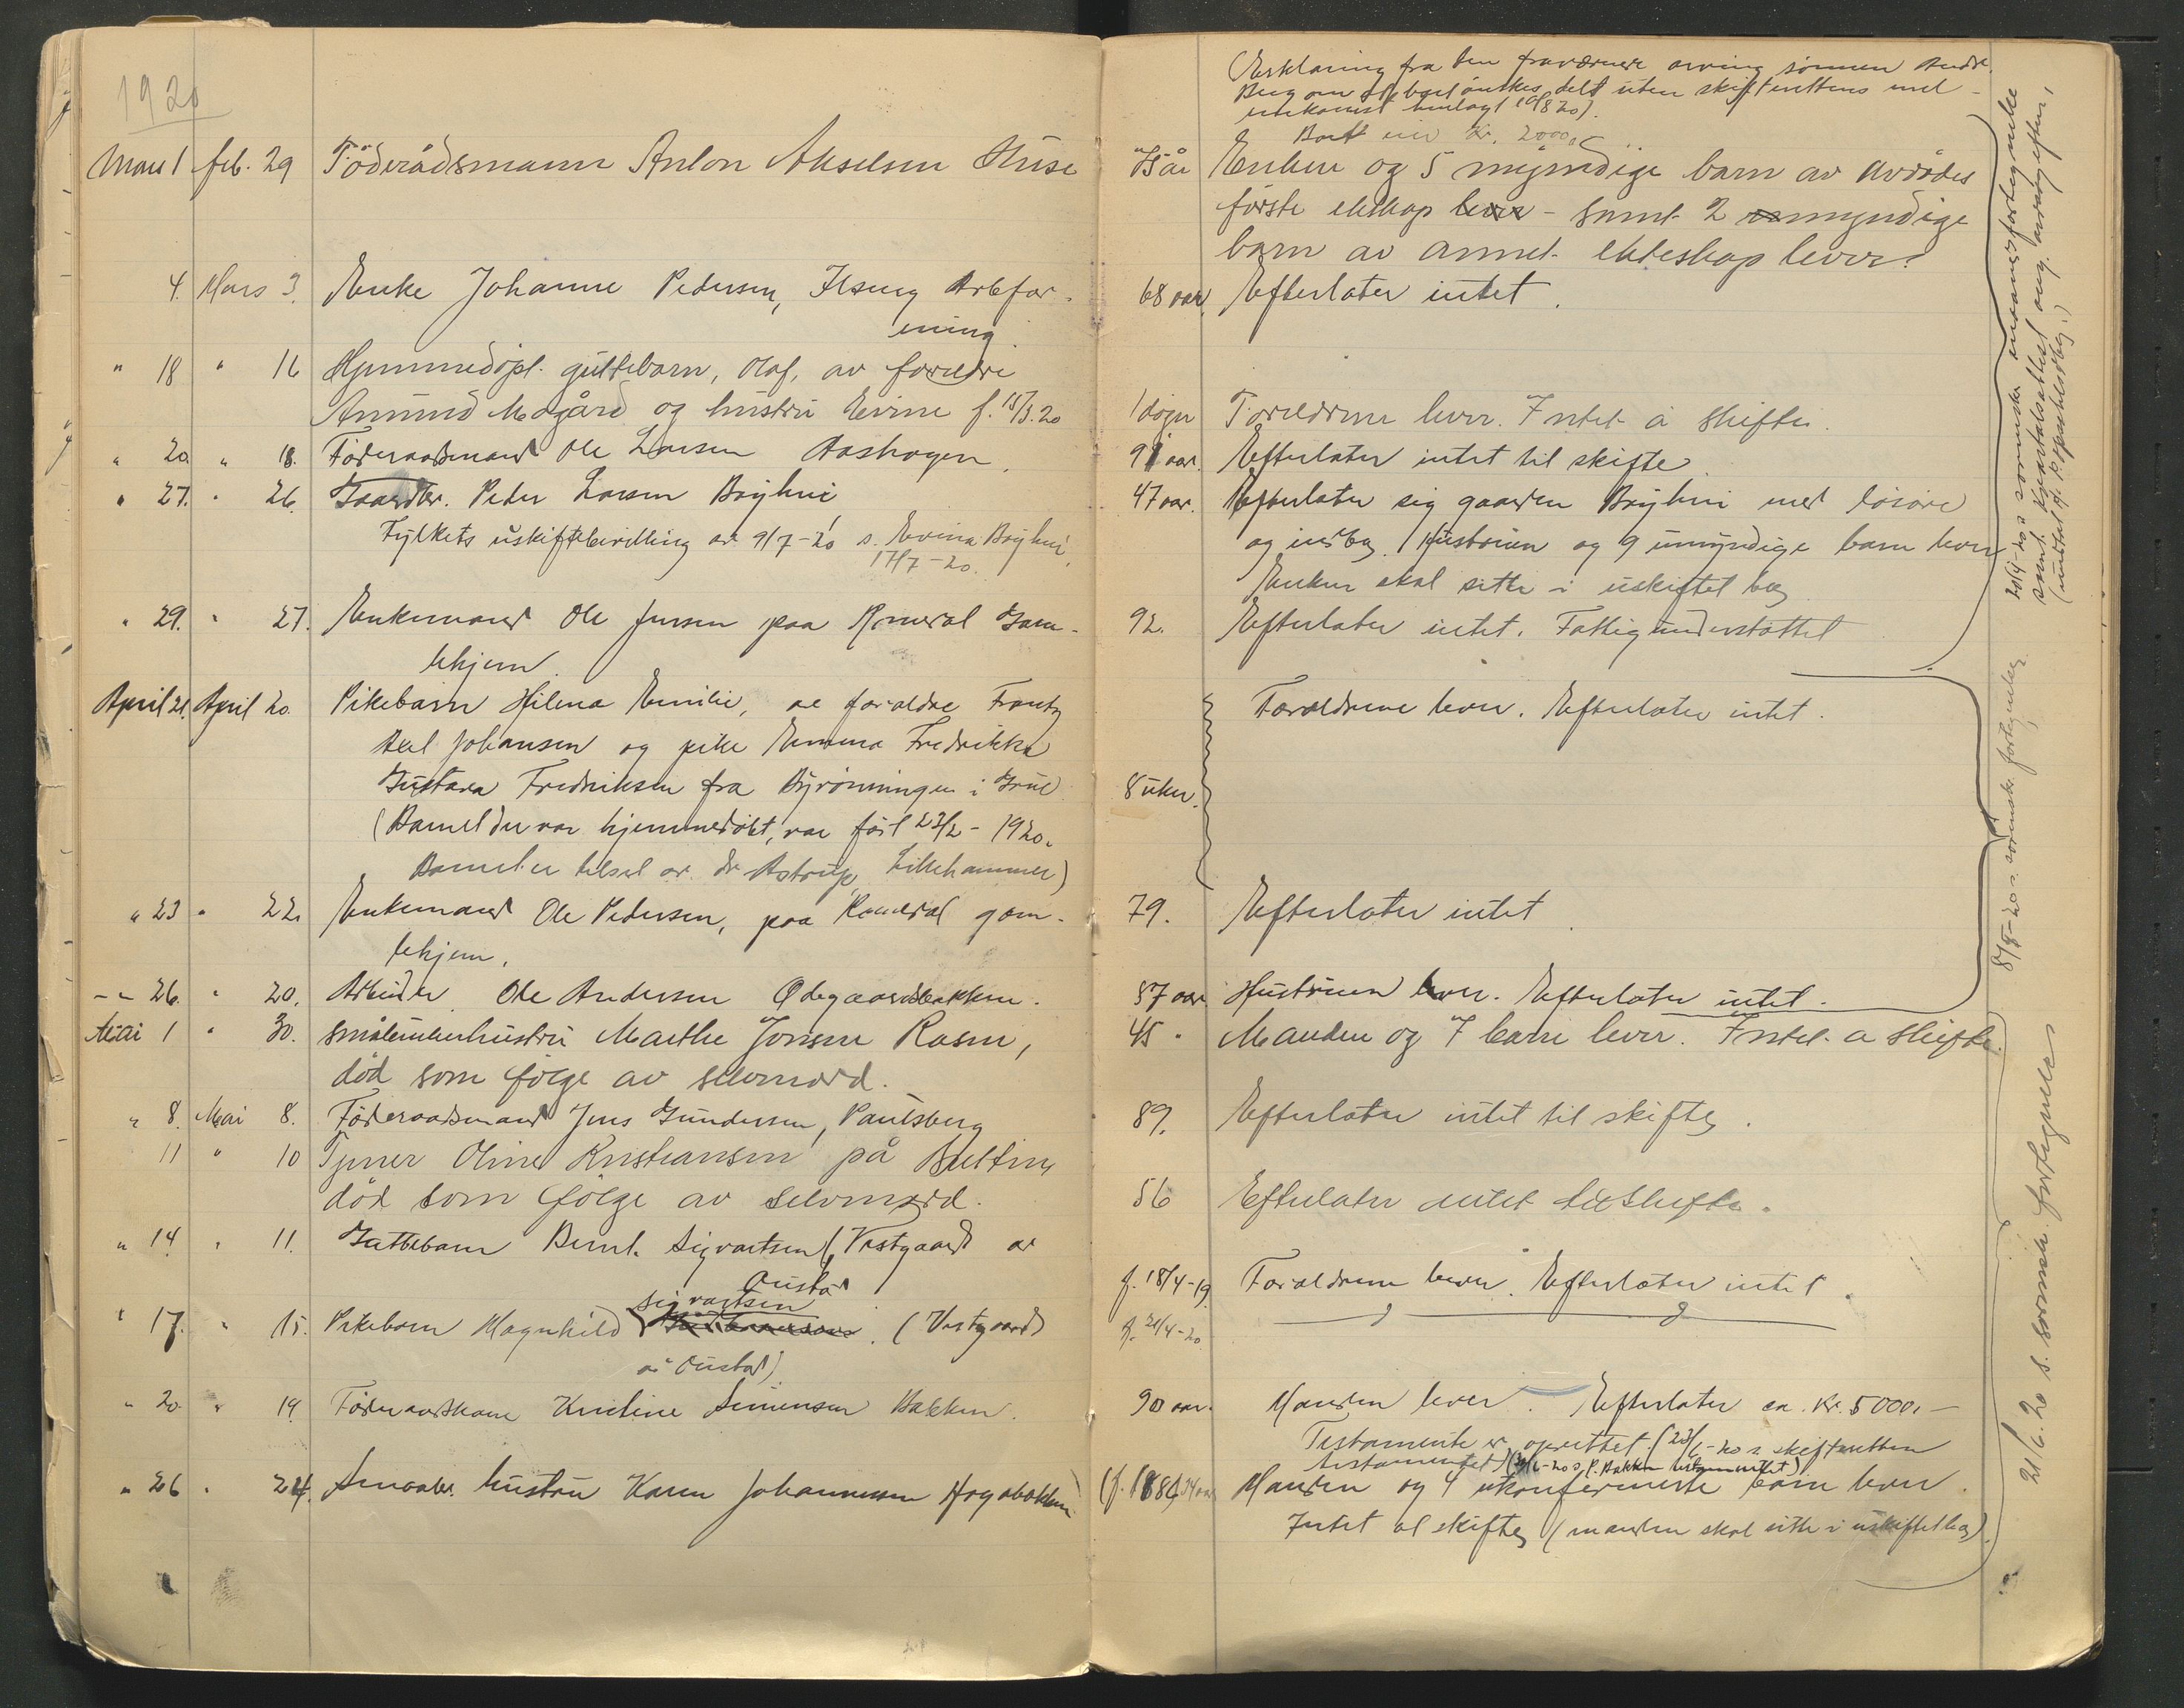 1920
Mars 1 feb. 29 Föderådsmann Anton Akselsen Huse
4. Mars 3. Enke Johanne Pedersen, Ilseng Arbfor-
ening.
" 18 " 16 Hjemmedöpt. guttebarn, Olaf, av foreldre
Amund Mogård og hustru Evine f. 15/3.20
" 20 " 18. Föderaadsmand Ole Larsen Aashagen.
" 27. " 26. Gaardbr. Peder Larsen Bryhni
Fylkets uskiftebevilling av 9/7-20 s. Evina Bryhni,
17/7-20.
" 29. " 27. Enkemand Ole Jensen paa Romedal Gam-
lehjem.
April 21. April 20. Pikebarn Hilma Emilie, av foraldre Frantz
Axel Johansen og pike Emma Fredrikke
Gustava Fredriksen fra Byrönningen i Grue
(Barnet der var hjemmedöbt, var föit 23/2-1920.
Barnet er tilset av dr Astrup, Lillehammer)
" 23 " 22. Enkemand Ole Pedersen, paa Romedal gam-
lehjem.
-"- 26. " 20. Arbeider Ole Andersen Ödegaardsbakken.
Mai 1 " 30. Småbrukerhustru Marthe Jonsen Rasen,
död som fölge av selvmord.
" 8. Mai 8. Föderaadsmand Jens Gundersen, Paulsberg
11 " 10 Tjener Oline Kristiansen på
död som fölge av selvmord.
" 14 " 11. Guttebarn Bernt Sigvartsen (Vestgaard av
Oustad
Sigvartsen
" 17. " 15. Pikebarn Magnhild (Vestgaard
av Oustad)
" 20 " 19. Föderaadskone Kristine Simensen Bakken.
" 26 " 24. Smaabr. hustru Karen Johannessen Hagabakken
(Erklæring fra den fraværende arving sönnen Andr.
Berg om at boet önskes delt uten skifterettens mel-
lemkomst innlagt 10/8 20).
Boet eier Kr. 2000,-
år Enken og 5 myndige barn av avdödes
förste ekteskap lever - samt 2 myndige
barn av annet ekteskap lever.
68 aar. Efterlater intet.
1 dögn Foreldrene lever. Intet å skifte.
91 aar. Efterlater intet til skifte.
47 aar. Efterlater sig gaarden Bryhni med lösöre
og indbo. Hustruen og 9 umyndige barn lever
Enken skal sitte i uskiftet bo
92. Efterlater intet. Fattigunderstöttet
Foraldrene lever. Efterlater intet.
8 uker.
79. Efterlater intet.
57 aar. Hustruen lever. Efterlater intet.
45 " Manden og 7 barn lever. Intet å skifte.
89. Efterlater intet til skifte.
56 Efterlater intet til skifte.
f. 18/4-19. Foraldrene lever. Efterlater intet.
f. 21/4-20
90 aar. Manden lever. Efterlater ca. Kr. 5000,-
Testamente er oprettet. (23/6-20 s. skifteretten
testamentet) s. P. Bakken testamentet)
(f. 1886 34 aar Manden og 4 ukonfirmerte barn lever.
Intet at skifte (manden skal sitte i uskiftet bo)
20/4-20 s. sorenskr. mannesfortegnelse
samt kvartalsattest ang. arv
8/5-20 s. sorenskr. fortegnelse
21/6.20 s. sorenskr. fortegnelse